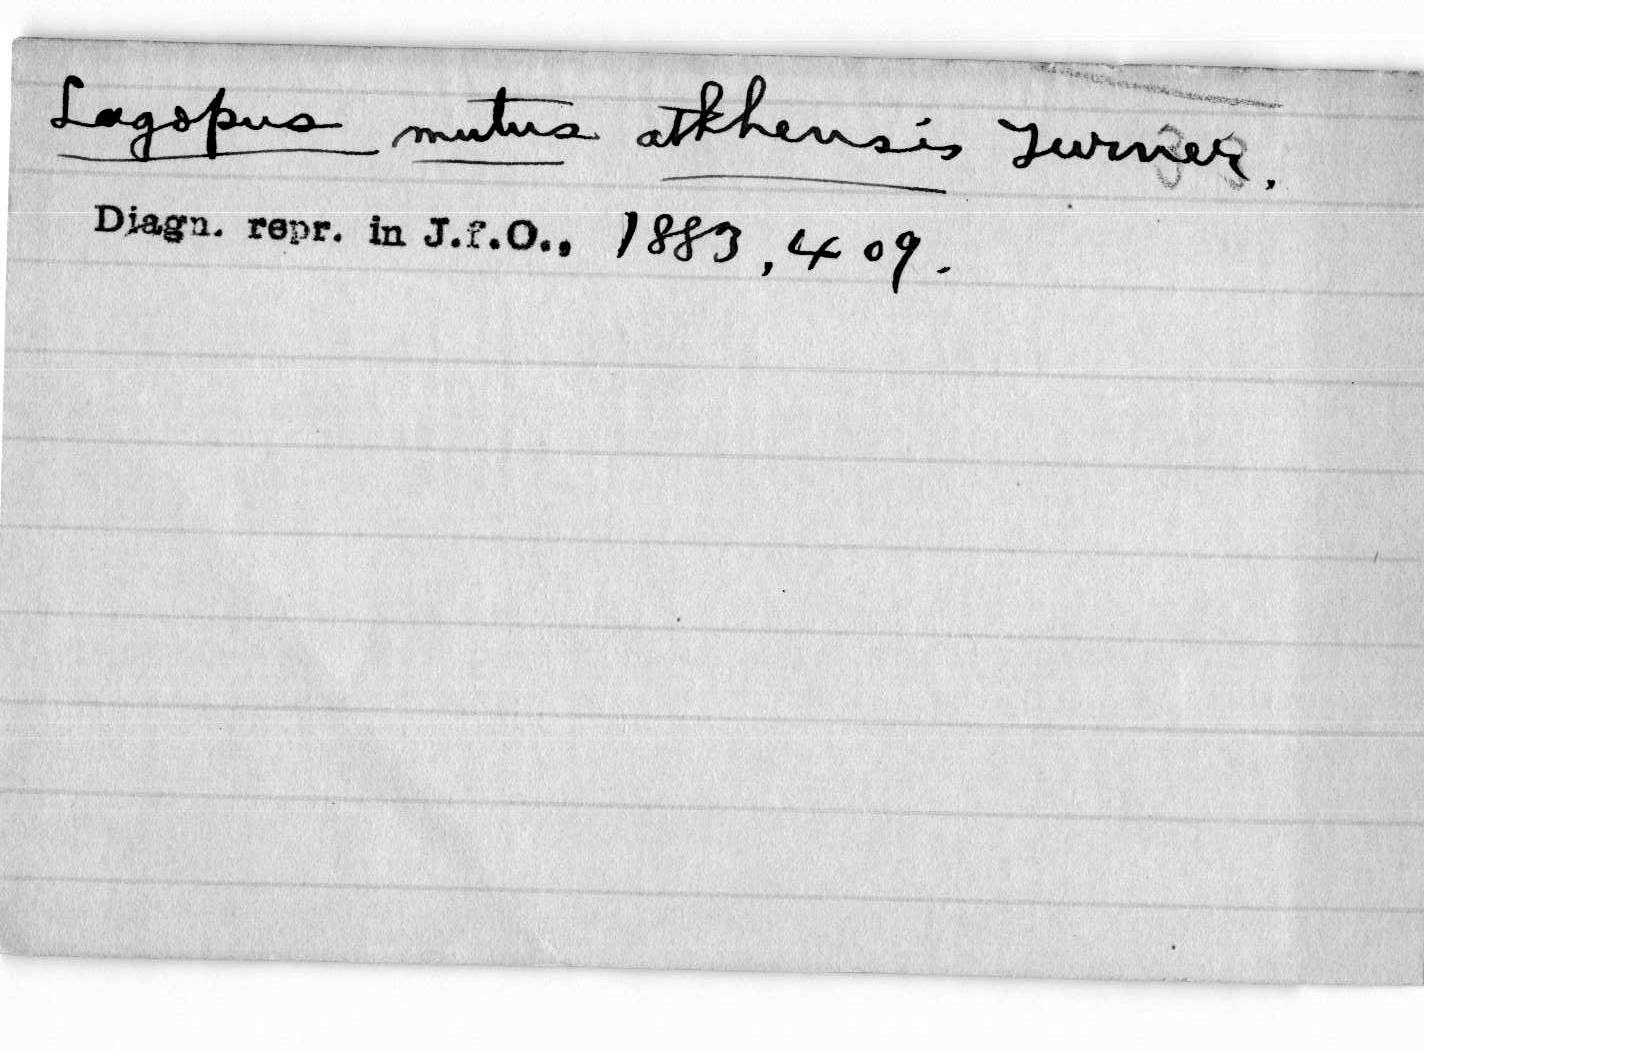 Lagopus mutus atkhensis Turner,
Diagn. repr. in J.f.O., 1883, 409.